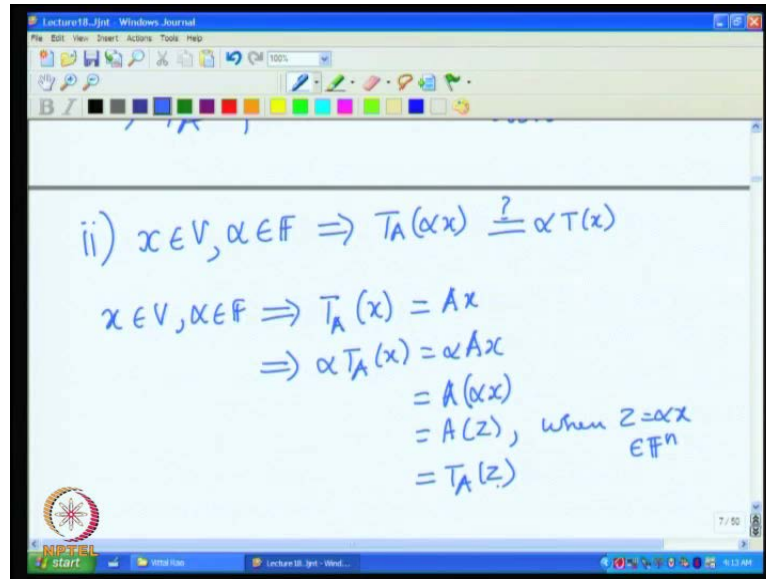 Lecture18.Jnt - Windows Journal
File Edit View Insert Actions Tools Help
100%
B I
ii) x ∈ V, α ∈ F ⇒ T_A(αx) ?= αT(x)
x ∈ V, α ∈ F ⇒ T_A(x) = Ax
⇒ αT_A(x) = αAx
= A(αx)
= A(z), when z = αx
∈ F^n
= T_A(z)
7/50
NPTEL
start Vittal Rao Lecture18.Jnt - Wind... 4:13 AM